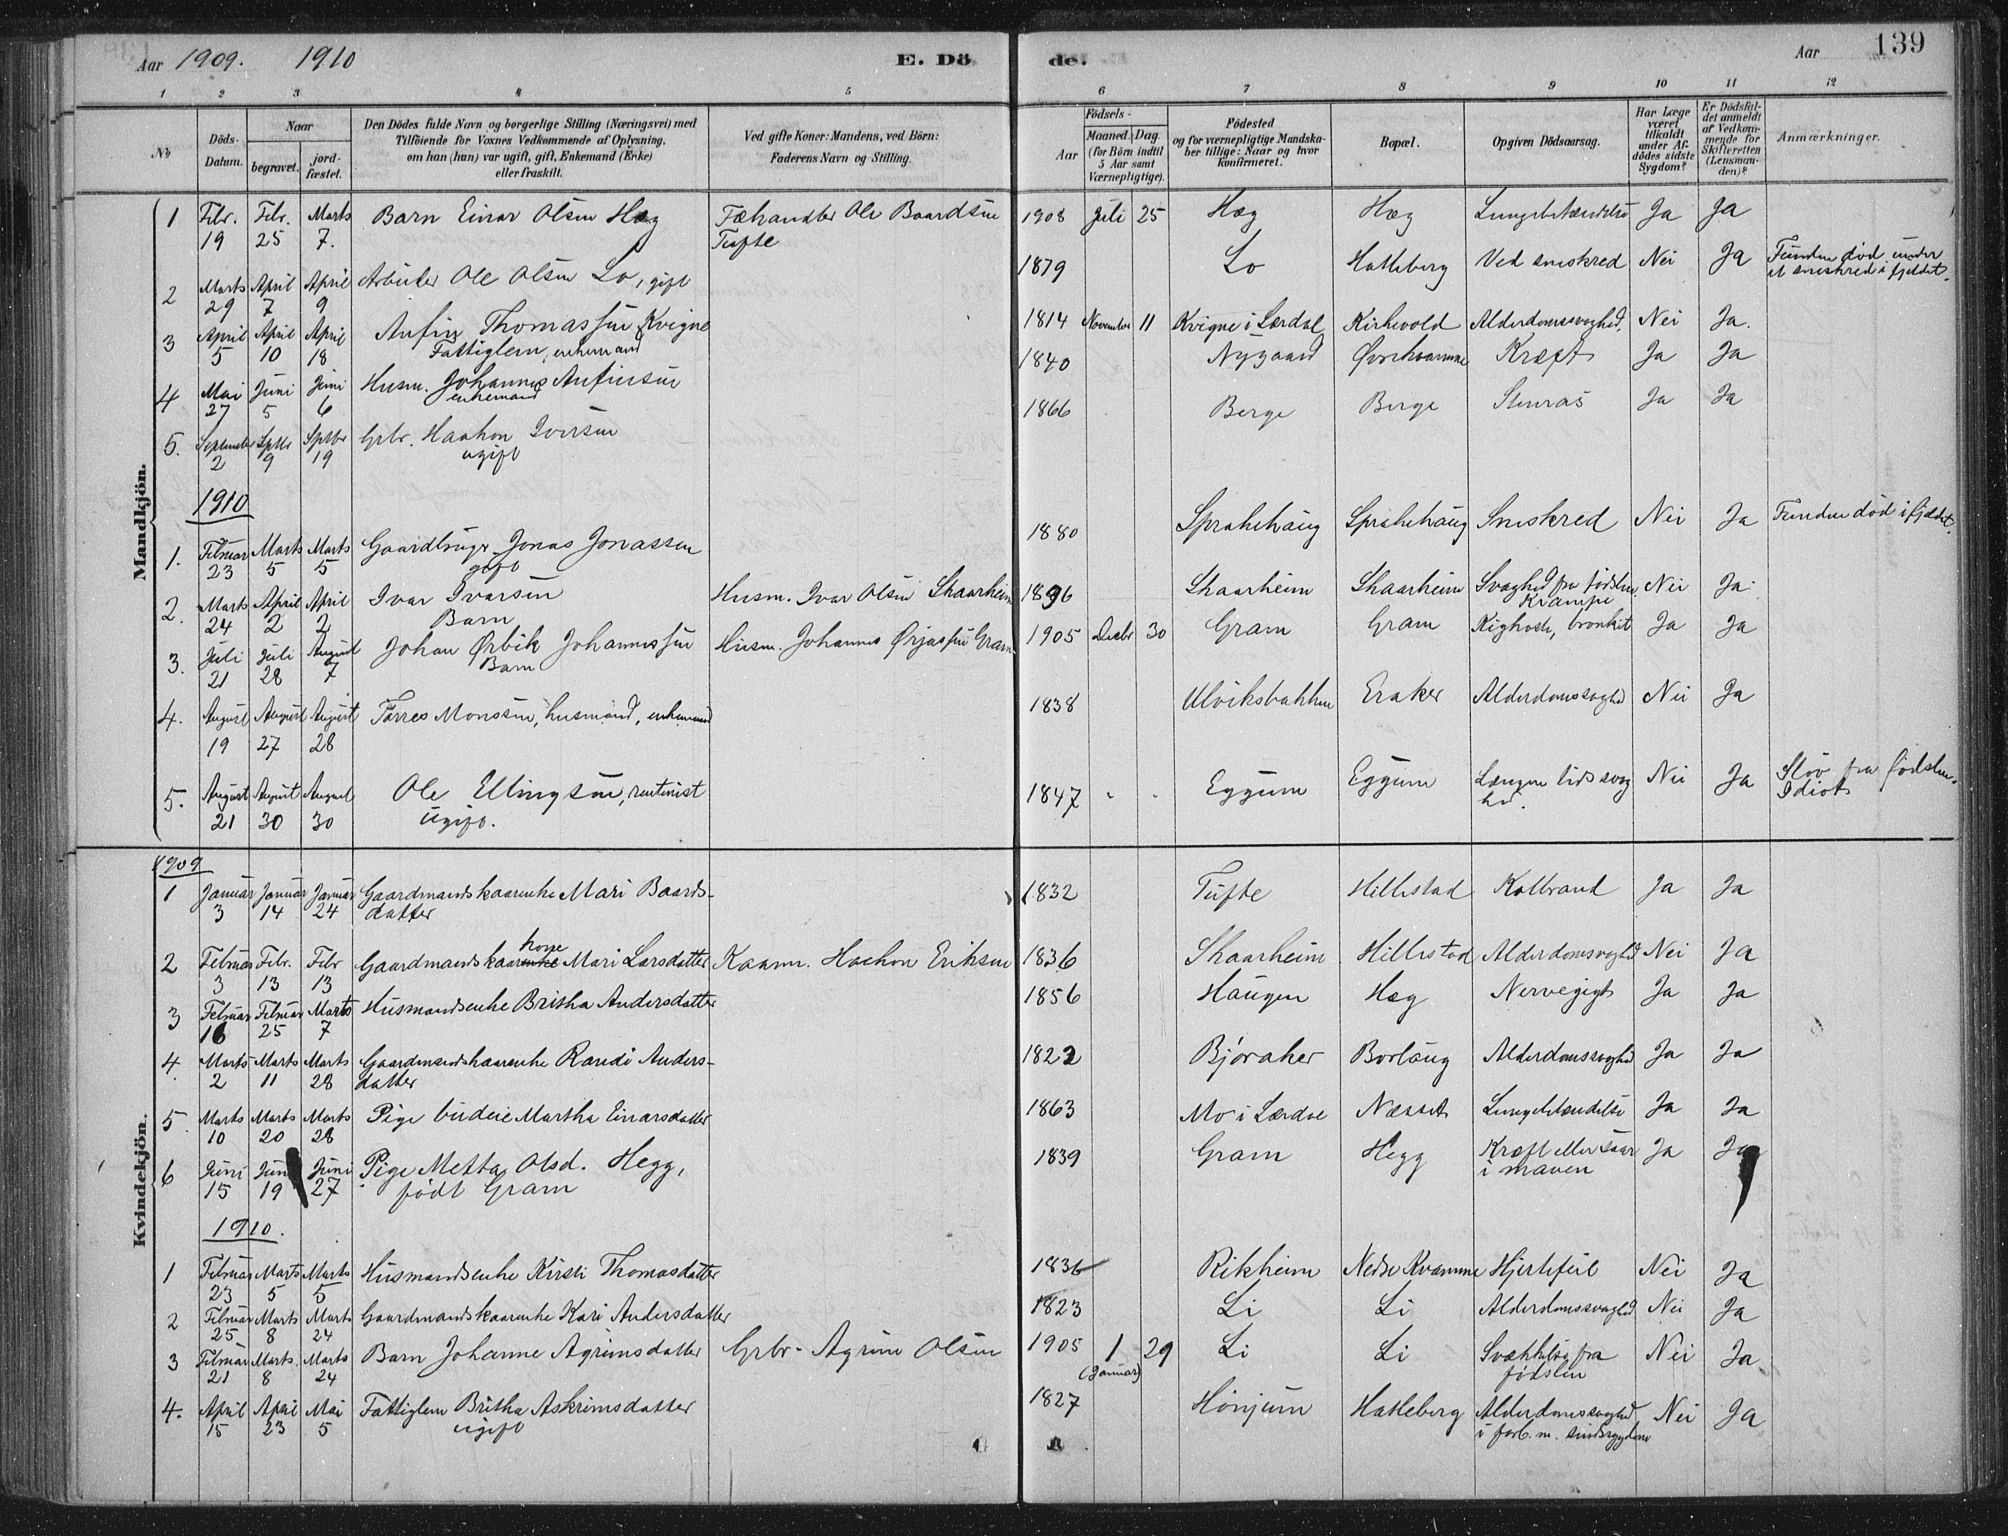 Aar 1909. 1910
E. Dö
de.
Aar
139
1 2 3 4 5 6 7 8 9 10 11 12
№
Döds-
Datum.
Naar
begravet.
jord-
fæstet.
Den Dödes fulde Navn og borgerlige Stilling (Næringsvei) med
Tilföiende for Voxnes Vedkommende af Oplysning,
om han (hun) var ugift, gift, Enkemand (Enke)
eller fraskilt.
Ved gifte Koner: Mandens, ved Börn:
Faderens Navn og Stilling.
Födsels-
Aar
Maaned. Dag.
(for Börn indtil
5 Aar samt
Værnepligtige).
Födested
og for værnepligtige Mandska-
ber tillige: Naar og hvor
konfirmeret.
Bopæl.
Opgiven Dödsaarsag.
Har Læge
været
tilkaldt
under Af-
dödes sidste
Sygdom?
Er Dödsfal-
det anmeldt
af Vedkom-
mende for
Skifteretten
(Lensman-
den)?
Anmærkninger.
Mandkjön.
1 Febr. 19 Febr. 25 Marts 7. Barn Einar Olsen Hæg Fæhandler Ole Baardsen Tufte 1908 Juli 25 Hæg Hæg Lungebetændelse Ja Ja
2 Marts 29 April 7 April 9 Arbeider Ole Olsen Lo, gift 1879 Lo Hatleberg Ved sneskred Nei Ja Funden død under et sneskred i fjeldet.
3 April 5 April 10 April 18 Anfin Thomassen Kvigne Fattiglem, enkemand 1814 November 11 Kvigne i Lærdal Kirkevold Alderdomssvaghed. Nei Ja.
4 Mai 27 Juni 5 Juni 6 Husm. Johannes Anfinsen enkemand 1840 Nygaard Øvrekvamme Kræft Ja Ja
5. September 2 Septbr 9 Septbr 19 Grbr. Haakon Iversen ugift 1866 Berge Berge Stenras Ja Ja
1910
1. Februar 23 Marts 5 Marts 5 Gaardbruger Jonas Jonassen gift 1880 Sprakehaug Sprakehaug Sneskred Nei Ja Funden død i fjeldet.
2. Marts 24 April 2 April 2 Ivar Ivarsen Barn Husm. Ivar Olsen Skaarheim 1896 Skaarheim Skaarheim Svaghed fra fødslen, Krampe Nei Ja.
3. Juli 21 Juli 28 August 7 Johan Ørbik Johannessen Barn Husm. Johannes Ørjassen Gram 1905 Decbr 30 Gram Gram Kighoste, bronkit Ja Ja
4. August 19 August 27 August 28 Tørres Monssen, husmand, enkemand 1838 Ulviksbakken Eraker Alderdomssvaghed Nei Ja
5. August 21 August 30 August 30 Ole Ellingsøn, rentenist ugift. 1847 " " Eggum Eggum Længere tids svaghed. Nei Ja Sløv fra fødslen. Idiot
Kvindekjön.
1909
1 Januar 3 Januar 14 Januar 24 Gaardmandskaarenke Mari Baards-
datter 1832 Tufte Hillestad Kolbrand Ja Ja
2 Februar 3 Febr. 13 Febr 13 Gaardmandskaarenke kone Mari Larsdatter Kaarm. Haakon Eriksen 1836 Skaarheim Hillestad Alderdomssvaghed Nei Ja
3 Februar 16 Februar 25 Marts 7 Husmandsenke Britha Andersdatter 1856 Haugen Hæg Nervegigt Ja Ja
4. Marts 2 Marts 11 Marts 28 Gaardmandskaarenke Randi Anders-
datter 1822 Bjøraker Borlaug Alderdomssvaghed Ja Ja
5. Marts 10 Marts 20 Marts 28 Pige budeie Martha Einarsdatter 1863 Mo i Lærdal Næsset Lungebetændelse Ja Ja
6 Juni 15 Juni 19 Juni 27 Pige Metta Olsd. Hegg, født Gram 1839 Gram Hegg Kræft eller saar i maven Ja Ja
1910.
1 Februar 23 Marts 5 Marts 5 Husmandsenke Kirsti Thomasdatter 1836 Rikheim Nedre Kvamme Hjertefeil Nei Ja
2 Februar 25 Marts 8 Marts 24 Gaardmandskaarenke Kari Andersdatter 1823 Li Li Alderdomssvaghed. Nei Ja
3 Februar 21 Marts 8 Marts 24 Barn Johanne Agrimsdatter Grbr. Agrim Olsen 1905 1 (Januar) 29 Li Li Svækkelse fra fødslen Nei Ja
4. April 15 April 23 Mai 5 Fattiglem Britha Askrimsdatter ugift 1827 Hønjum Hatleberg Alderdomssvaghed i forb. m. sindssygdom Nei Ja